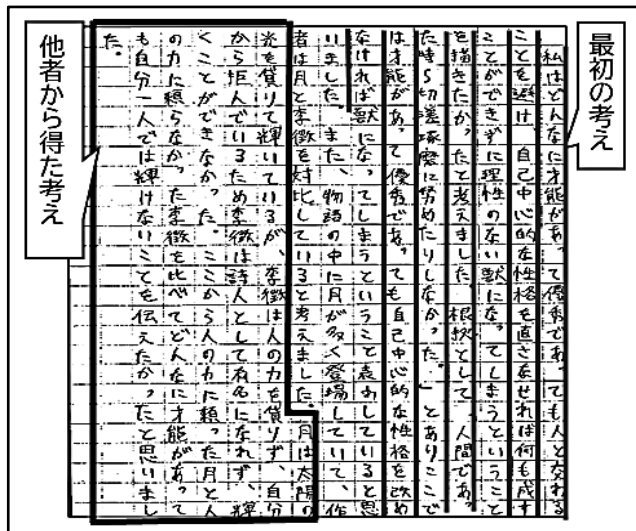 最初の考え
私はどんなに才能があって優秀であっても人と交わる
ことを避け、自己中心的な性格を直さなせれば何も成す
ことができずに理性のない獣になってしまうということ
を描きたかったと考えました。根拠として、人間であっ
た時ら切磋琢磨に努めたりしなかった。」とありここで
は才能があって優秀であっても自己中心的な性格を改め
なければ獣になってしまうということ表わしていると思
いました。また、物語の中に月が多く登場していて、作
者は月と李徴を対比していると考えました。月は太陽の
光を貸りて輝いているが、李徴は人の力を貸りず、自分
から拒んでいるため李徴は詩人として有名になれず、輝
くことができなかった。ここから人の力に頼った月と人
の力に頼らなかった李徴を比べてどんなに才能があって
も自分一人では輝けないことを伝えたかったと思いまし
た。
他者から得た考え